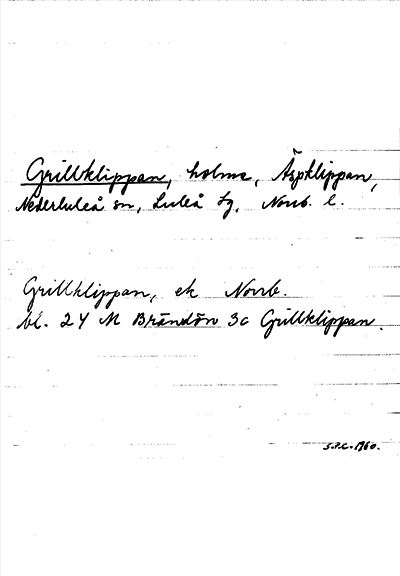 Grillklippan, holme, Äspklippan,
Nederluleå sn, Luleå tg, Norrb. l.
Grillklippan, ek Norrb.
bl. 24 M Brändön 3c Grillklippan.
S.P.C. 1960.